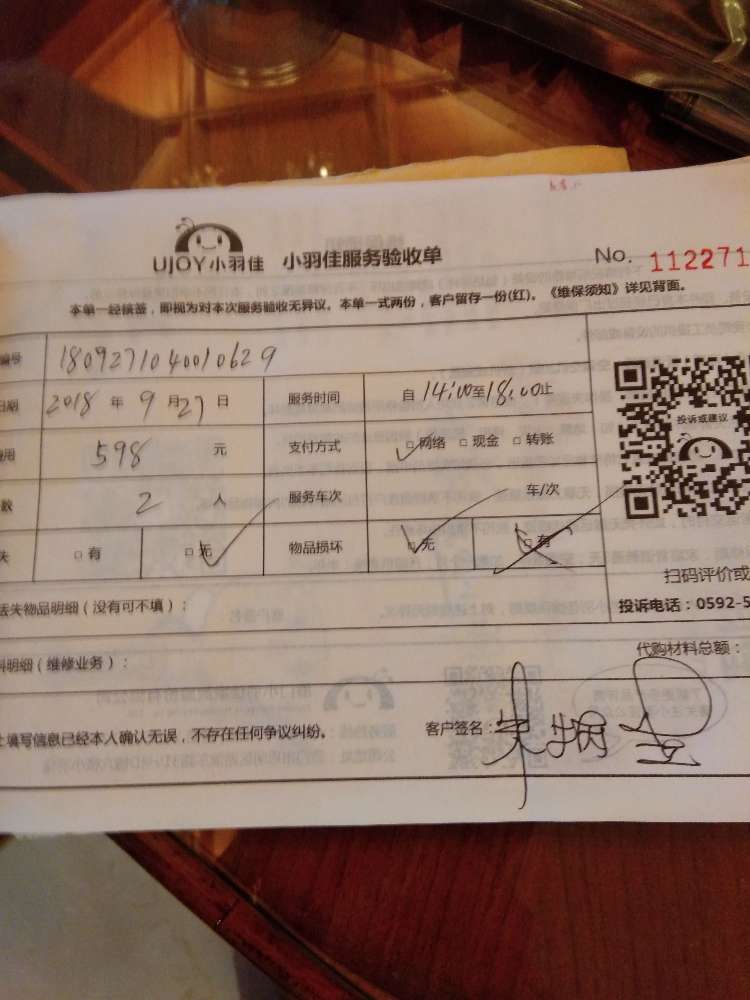 UJOY小羽佳 小羽佳服务验收单 No. 112271
本单一经核签，即视为对本次服务验收无异议。本单一式两份，客户留存一份(红)。《维保须知》详见背面。
编号 1809271040010629
日期 2018 年 9 月 27 日 服务时间 自 14:00 至 18:00 止
用 598 元 支付方式 □网络 □现金 □转账
投诉或建议
数 2 人 服务车次 车/次
失 □有 □无 物品损坏 □无 □有
扫码评价或
丢失物品明细（没有可不填）： 投诉电话：0592-5
料明细（维修业务）： 代购材料总额：
上填写信息已经本人确认无误，不存在任何争议纠纷。 客户签名：